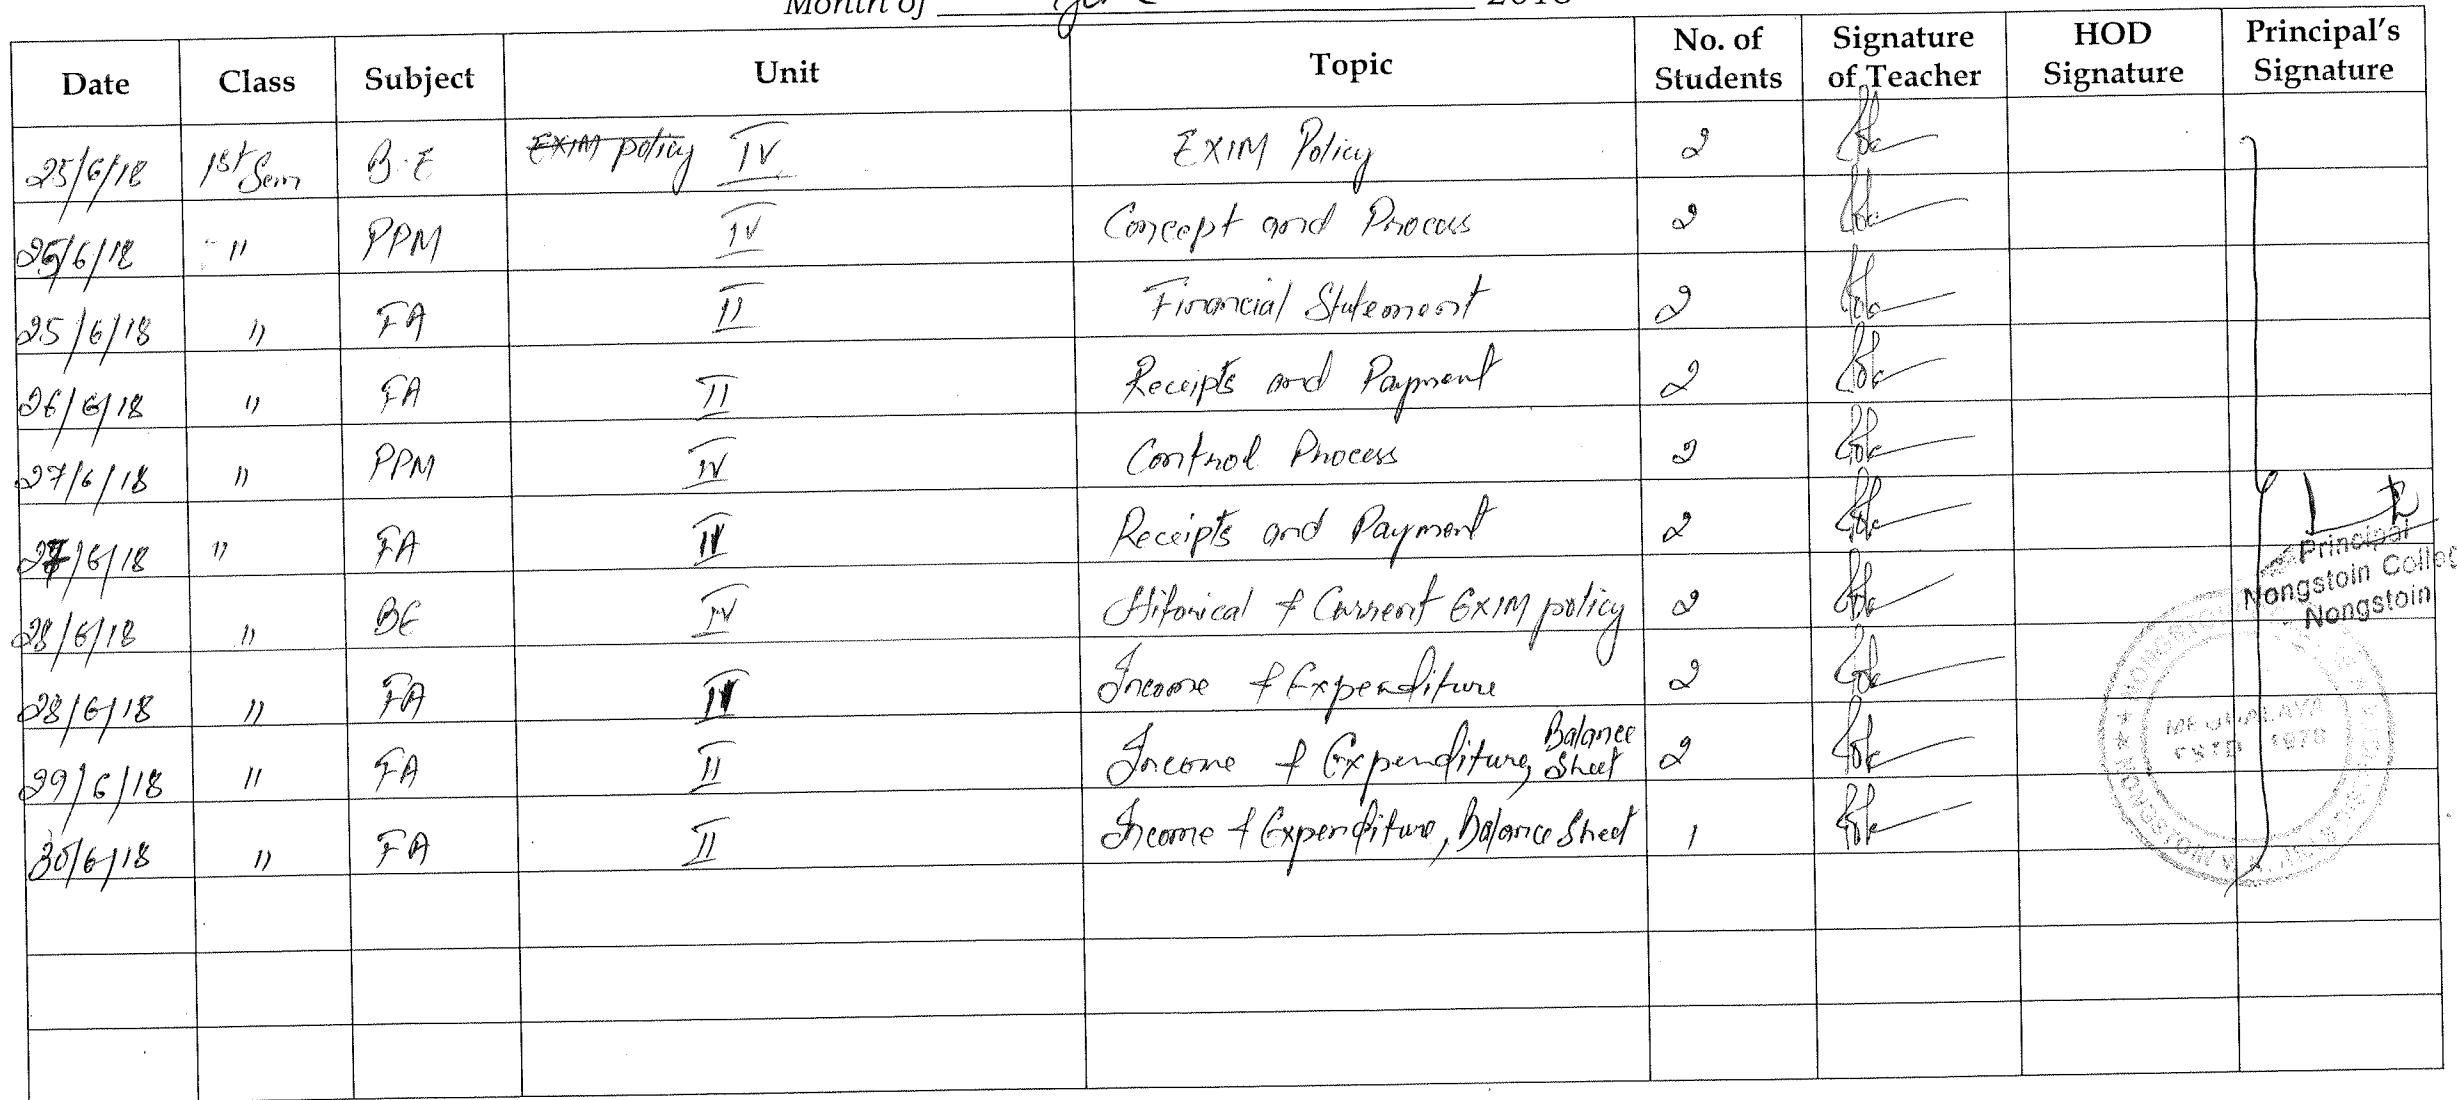 Month of June 2018
Date Class Subject Unit Topic No. of Students Signature of Teacher HOD Signature Principal's Signature
25/6/18 1st Sem B.E EXIM policy IV EXIM Policy 2
25/6/18 " PPM IV Concept and Process 2
25/6/18 " FA II Financial Statement 2
26/6/18 " FA II Receipts and Payment 2
27/6/18 " PPM IV Control Process 2
27/6/18 " FA II Receipts and Payment 2
28/6/18 " BE IV Hitorical & Current EXIM policy 2
28/6/18 " FA II Income & Expenditure 2
29/6/18 " FA II Income & Expenditure, Balance Sheet 2
30/6/18 " FA II Income & Expenditure, Balance Sheet 1
Principal
Nongstoin Colleg
Nongstoin
MEGHALAYA
ESTD 1978